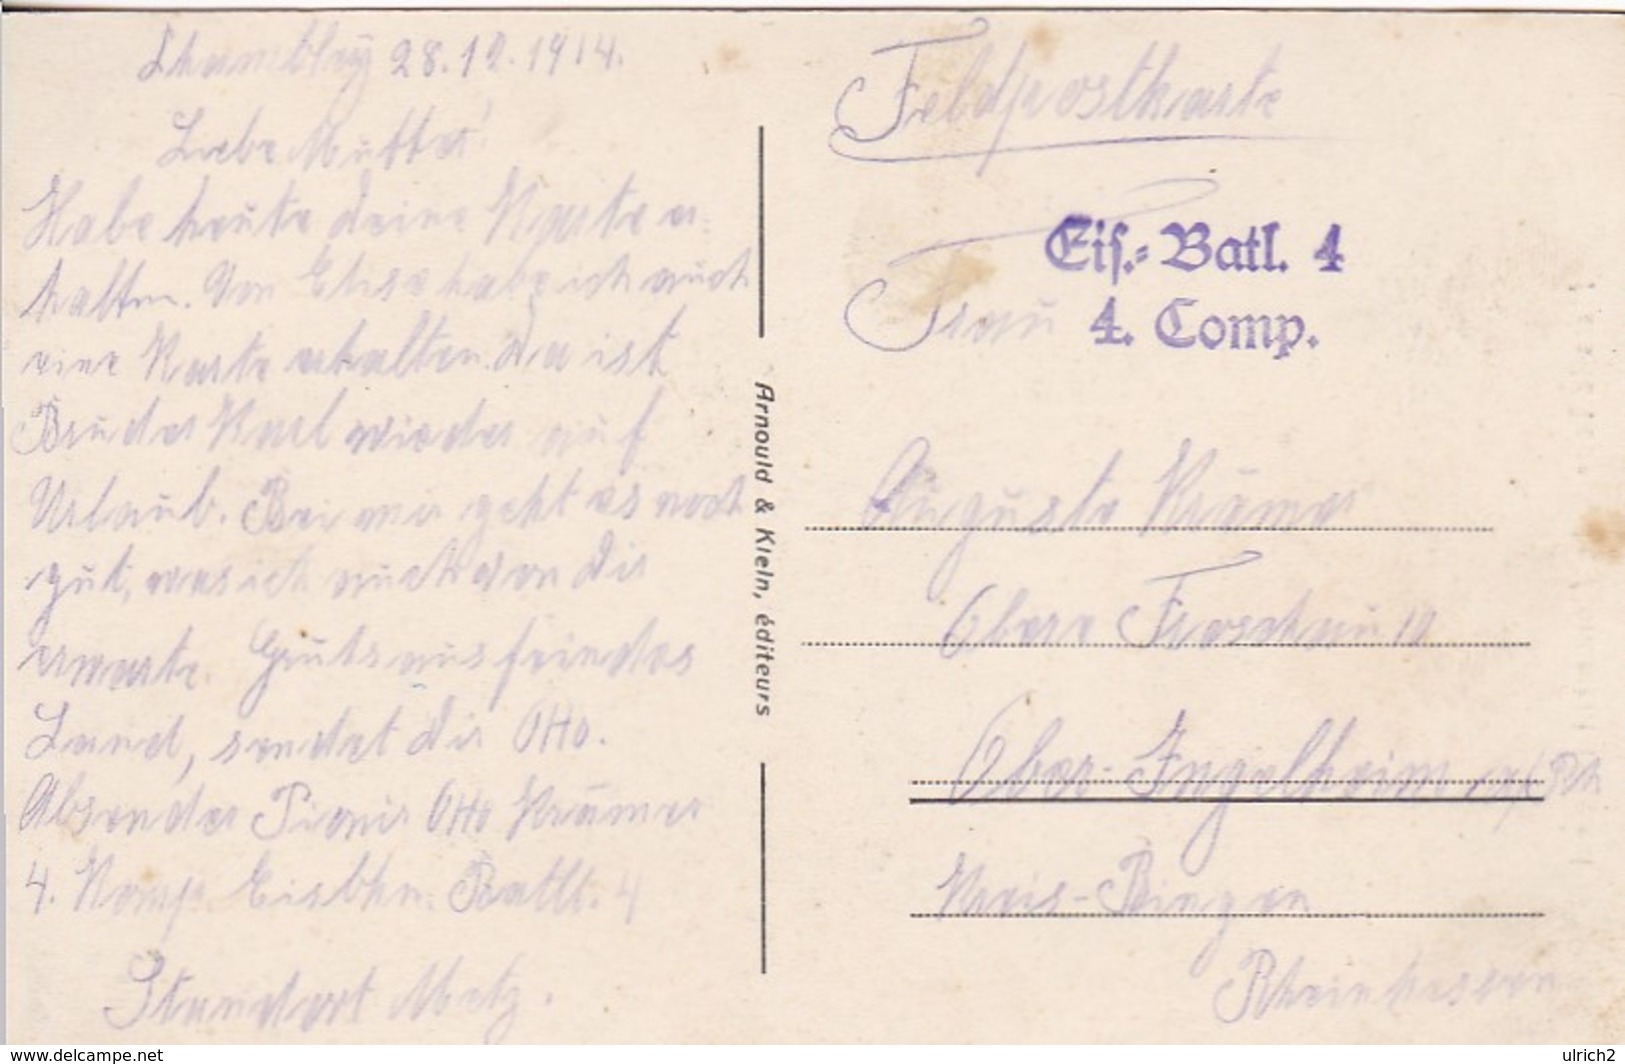 Chambley 28.12.1914.
Liebe Mutter!
Habe heute deine Karte er-
halten. Von Elise habe ich auch
eine Karte erhalten. Da ist
Bruder Karl wieder auf
Urlaub. Bei mir geht es noch
gut, was ich auch von dir
erwarte. Gruß aus feindes
Land, sendet dir Otto.
Absender Pionir Otto Krämer
4. Komp. Eisbhn. Batlt. 4
Standort Metz.
Arnould & Klein, éditeurs
Feldpostkarte
Eis.-Batl. 4
4. Comp.
Frau
Auguste Krämer
Obere Froschau 10
Ober-Ingelheim a/Rh
Kreis-Bingen
Rheinhessen
www.delcampe.net
ulrich2